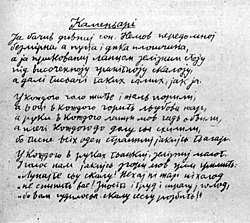 Каменярі
Я бачив дивний сон. Немов передо мною
безмірна а пуста і дика площина,
а я прикований ланцем зелізним стою
під височенною гранітною скалою,
а далі тисячі таких самих, як я.
У кождого чоло
і в очах кождого горить любови жар,
а руки в кождого ланци мов гадь обвили,
а плечі кождого до долу ся схилили,
бо тисне всіх один страшний якийсь тягар.
У кождого в руках тяжкий зелізний молот
І голос наш якийсь згори мов грім гримить:
„Лупайте сю скалу! Нехай ні жар ні холод
не спинить вас! Зносіть і труд і спрагу і голод,
бо вам скалу сесю розбить!"